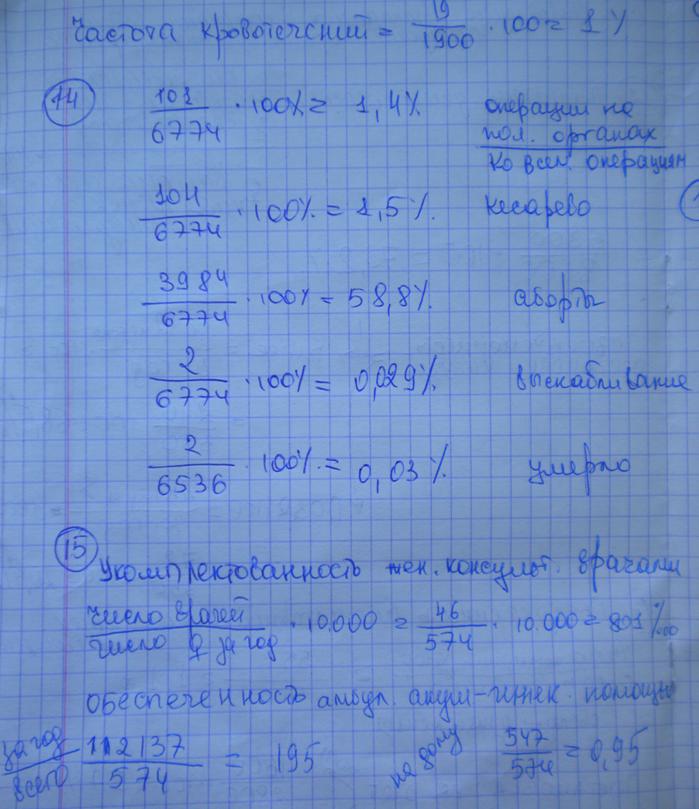 Частота кровотечений = 19/1900 · 100 = 1 %
14 101/6774 · 100% = 1,4% операции на пол. органах / ко всем операциям
104/6774 · 100% = 1,5% кесарево
3984/6774 · 100% = 58,8% аборты
2/6774 · 100% = 0,029% выскабливание
2/6536 · 100% = 0,03% умерло
15
Укомплектованность жен. консульт. врачами
число врачей/число ♀ за год · 10.000 = 46/574 · 10.000 = 801 ‱
обеспеченность амбул. акуш-гинек. помощью
за год/всего 112137/574 = 195 на дому 547/574 = 0,95